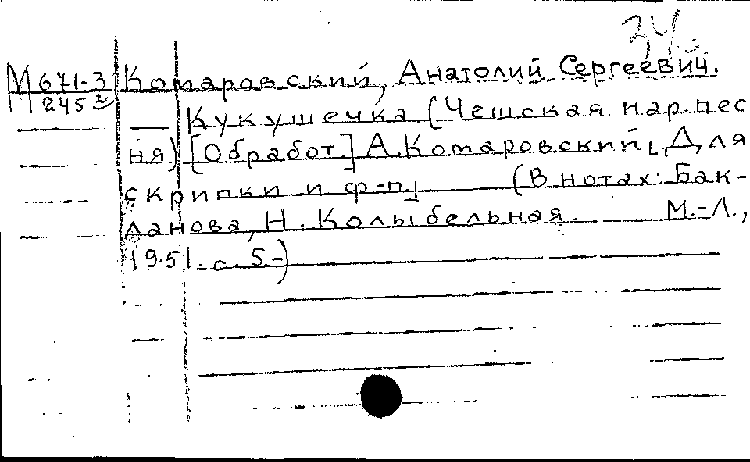 34
М 671-3 Комаровский, Анатолий Сергеевич.
245
Кукушечка (Чешская нар. пес
ня) [Обработ.] А. Комаровский [Для
скрипки и ф-п] (В нотах: Бак-
ланова, Н. Колыбельная. М.-Л.,
1951. с. 5-)